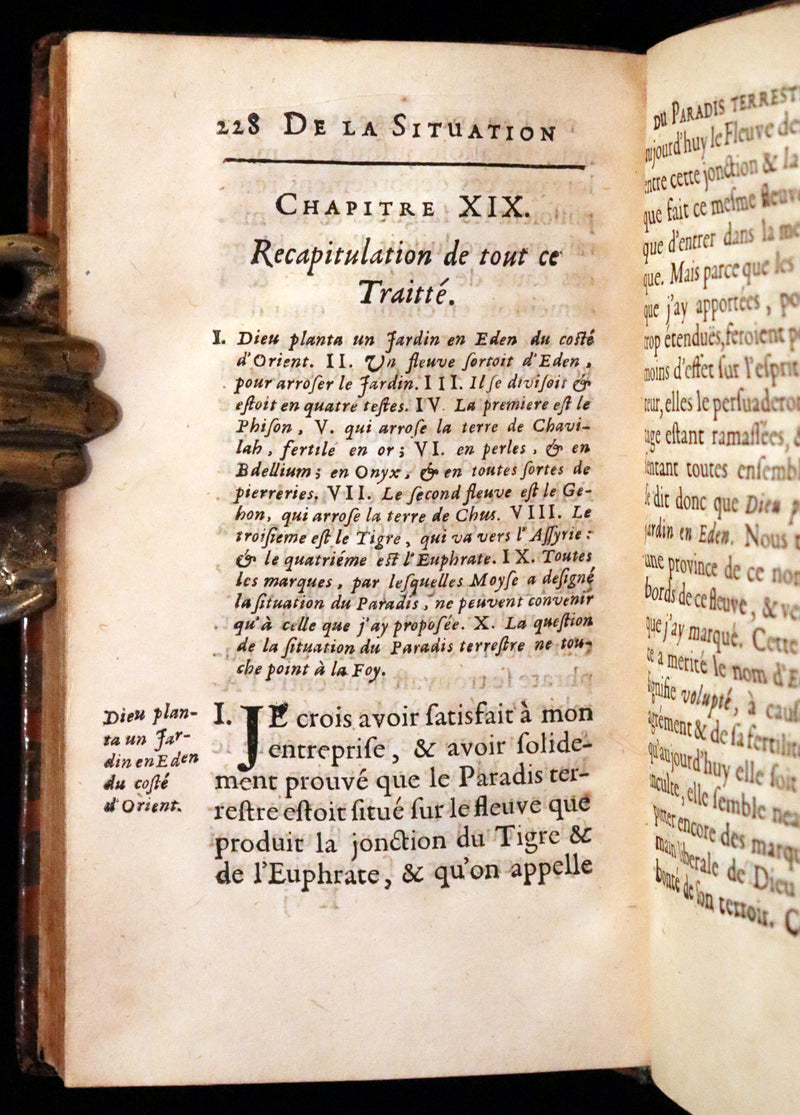 228 DE LA SITUATION
CHAPITRE XIX.
Recapitulation de tout ce
Traitté.
I. Dieu planta un Jardin en Eden du coſté
d'Orient. II. Un fleuve ſortoit d'Eden,
pour arroſer le Jardin. III. Il ſe diviſoit &
eſtoit en quatre teſtes. IV. La premiere eſt le
Phiſon, V. qui arroſe la terre de Chavi-
lah, fertile en or; VI. en perles, & en
Bdellium; en Onyx, & en toutes ſortes de
pierreries. VII. Le ſecond fleuve eſt le Ge-
hon, qui arroſe la terre de Chus. VIII. Le
troiſieme eſt le Tigre, qui va vers l'Aſſyrie:
& le quatriéme eſt l'Euphrate. IX. Toutes
les marques, par leſquelles Moyſe a deſigné
la ſituation du Paradis, ne peuvent convenir
qu'à celle que j'ay propoſée. X. La queſtion
de la ſituation du Paradis terreſtre ne tou-
che point à la Foy.
Dieu plan-
ta un Jar-
din en Eden
du coſté
d'Orient.
I. JE crois avoir ſatisfait à mon
entrepriſe, & avoir ſolide-
ment prouvé que le Paradis ter-
reſtre eſtoit ſitué ſur le fleuve que
produit la jonction du Tigre &
de l'Euphrate, & qu'on appelle
DU PARADIS TERREST
aujourd'huy le Fleuve de
entre cette jonction & la
que fait ce meſme fleuve
que d'entrer dans la me
que. Mais parce que les
que j'ay apportées, po
trop étenduës, feroient p
moins d'effet ſur l'eſprit
teur, elles le perſuaderon
age eſtant ramaſſées, &
ſentant toutes enſembl
dit donc que Dieu p
Jardin en Eden. Nous t
une province de ce nom
bords de ce fleuve, & ve
que j'ay marqué. Cette
a merité le nom d'E
ſignifie volupté, à cauſ
agrément & de ſa fertilit
qu'aujourd'huy elle ſoit
inculte, elle ſemble nea
porter encore des marqu
main liberale de Dieu
bonté de ſon terroir. C